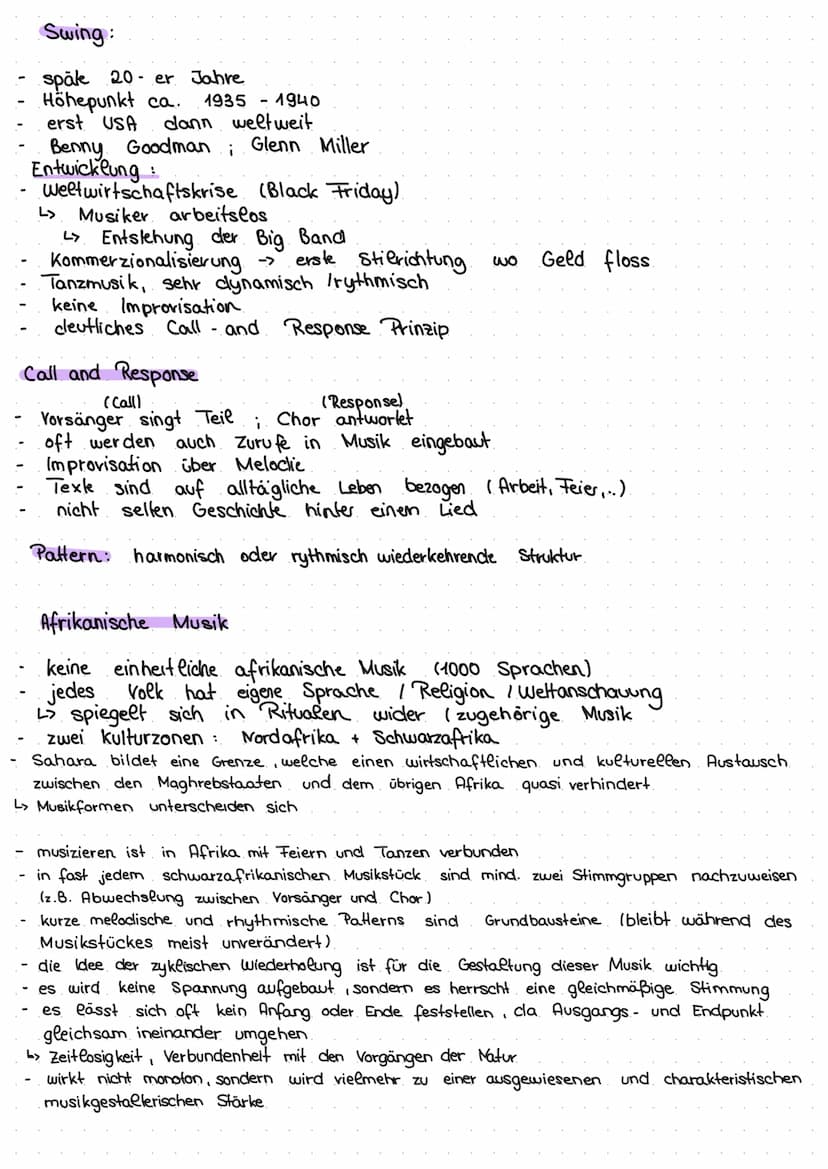 Swing:
- späte 20-er Jahre
- Höhepunkt ca. 1935 - 1940
- erst USA dann weltweit
- Benny Goodman ; Glenn Miller
Entwicklung :
- Weltwirtschaftskrise (Black Friday)
↳ Musiker arbeitslos
↳ Entstehung der Big Band
- Kommerzionalisierung -> erste Stilrichtung wo Geld floss
- Tanzmusik, sehr dynamisch /rythmisch
- keine Improvisation
- deutliches Call - and Response Prinzip
Call and Response
(Call) (Response)
- Vorsänger singt Teil ; Chor antwortet
- oft werden auch Zurufe in Musik eingebaut
- Improvisation über Melodie
- Texte sind auf alltägliche Leben bezogen (Arbeit, Feier,..)
- nicht selten Geschichte hinter einem Lied
Pattern: harmonisch oder rythmisch wiederkehrende Struktur
Afrikanische Musik
- keine einheitliche afrikanische Musik (1000 Sprachen)
- jedes Volk hat eigene Sprache / Religion / Weltanschauung
↳ spiegelt sich in Ritualen wider (zugehörige Musik
- zwei Kulturzonen : Nordafrika + Schwarzafrika
- Sahara bildet eine Grenze, welche einen wirtschaftlichen und kulturellen Austausch
zwischen den Maghrebstaaten und dem übrigen Afrika quasi verhindert
↳ Musikformen unterscheiden sich
- musizieren ist in Afrika mit Feiern und Tanzen verbunden
- in fast jedem schwarzafrikanischen Musikstück sind mind. zwei Stimmgruppen nachzuweisen
(z.B. Abwechslung zwischen Vorsänger und Chor)
- kurze melodische und rhythmische Patterns sind Grundbausteine (bleibt während des
Musikstückes meist unverändert)
- die Idee der zyklischen Wiederholung ist für die Gestaltung dieser Musik wichtig
- es wird keine Spannung aufgebaut, sondern es herrscht eine gleichmäßige Stimmung
- es lässt sich oft kein Anfang oder Ende feststellen, da Ausgangs- und Endpunkt
gleichsam ineinander umgehen
↳ Zeitlosigkeit, Verbundenheit mit den Vorgängen der Natur
- wirkt nicht monoton, sondern wird vielmehr zu einer ausgewiesenen und charakteristischen
musikgestallerischen Stärke